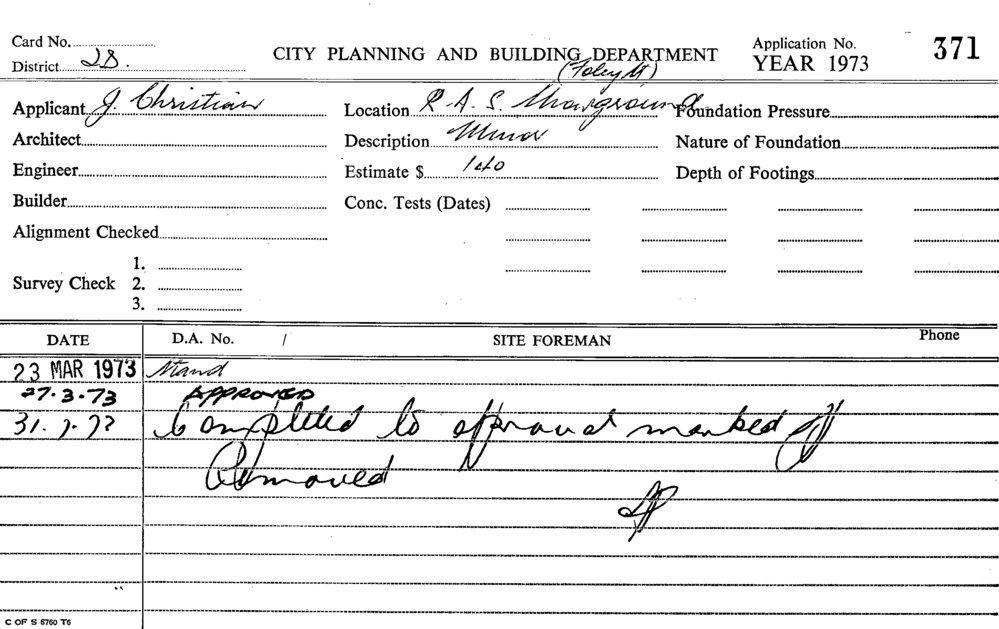 Card No.
District 2S.
CITY PLANNING AND BUILDING DEPARTMENT
(Foley St)
Application No. 371
YEAR 1973
Applicant J. Christian
Location R.A.S. Showground
Foundation Pressure
Architect
Description Minor
Nature of Foundation
Engineer
Estimate $ 140
Depth of Footings
Builder
Conc. Tests (Dates)
Alignment Checked
Survey Check 1.
2.
3.
DATE D.A. No. / SITE FOREMAN Phone
23 MAR 1973 Stand
27.3.73 APPROVED
31.7.73 Completed to approval marked off
Removed
C OF S 5760 T6